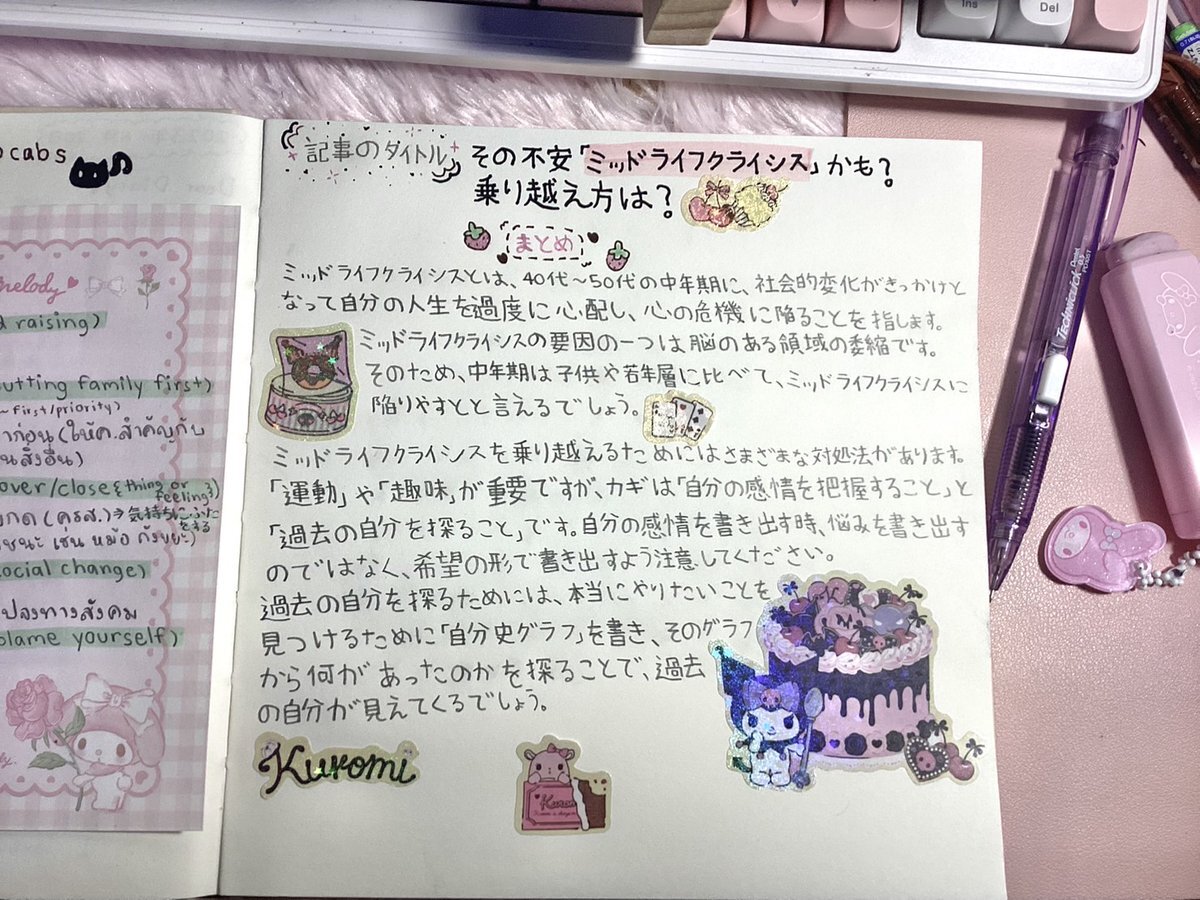 Ins
Del
ocabs
melody
raising)
putting family first)
~first/priority)
าก่อน (ให้ค.สำคัญกับ
นสิ่งอื่น)
over/close {thing or feeling}
กด (คุธส.) → 気持ちにふたをする
social change)
ปลงทางสังคม
blame yourself)
記事のタイトル
その不安「ミッドライフクライシス」かも?
乗り越え方は?
まとめ
ミッドライフクライシスとは、40代~50代の中年期に、社会的変化がきっかけと
なって自分の人生を過度に心配し、心の危機に陥ることを指します。
ミッドライフクライシスの要因の一つは脳のある領域の委縮です。
そのため、中年期は子供や若年層に比べて、ミッドライフクライシスに
陥りやすとと言えるでしょう。
ミッドライフクライシスを乗り越えるためにはさまざまな対処法があります。
「運動」や「趣味」が重要ですが、カギは「自分の感情を把握すること」と
「過去の自分を探ること」です。自分の感情を書き出す時、悩みを書き出す
のではなく、希望の形で書き出すよう注意してください。
過去の自分を探るためには、本当にやりたいことを
見つけるために「自分史グラフ」を書き、そのグラフ
から何があったのかを探ることで、過去
の自分が見えてくるでしょう。
Kuromi
Kuromi
TECHNICLICK 0.5
Pentel